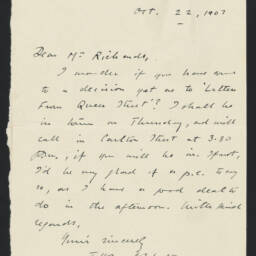 Oct. 22, 1907
Dear Mr Richards,
I wonder if you have come
to a decision yet as to 'Letters
from Queer Street'? I shall be
in town on Thursday, and will
call in Carlton Street at 3-30
p.m., if you will be in. If not,
I'd be very glad if a p.c. to say
so, as I have a good deal to
do in the afternoon. With kind
regards,
Yours sincerely